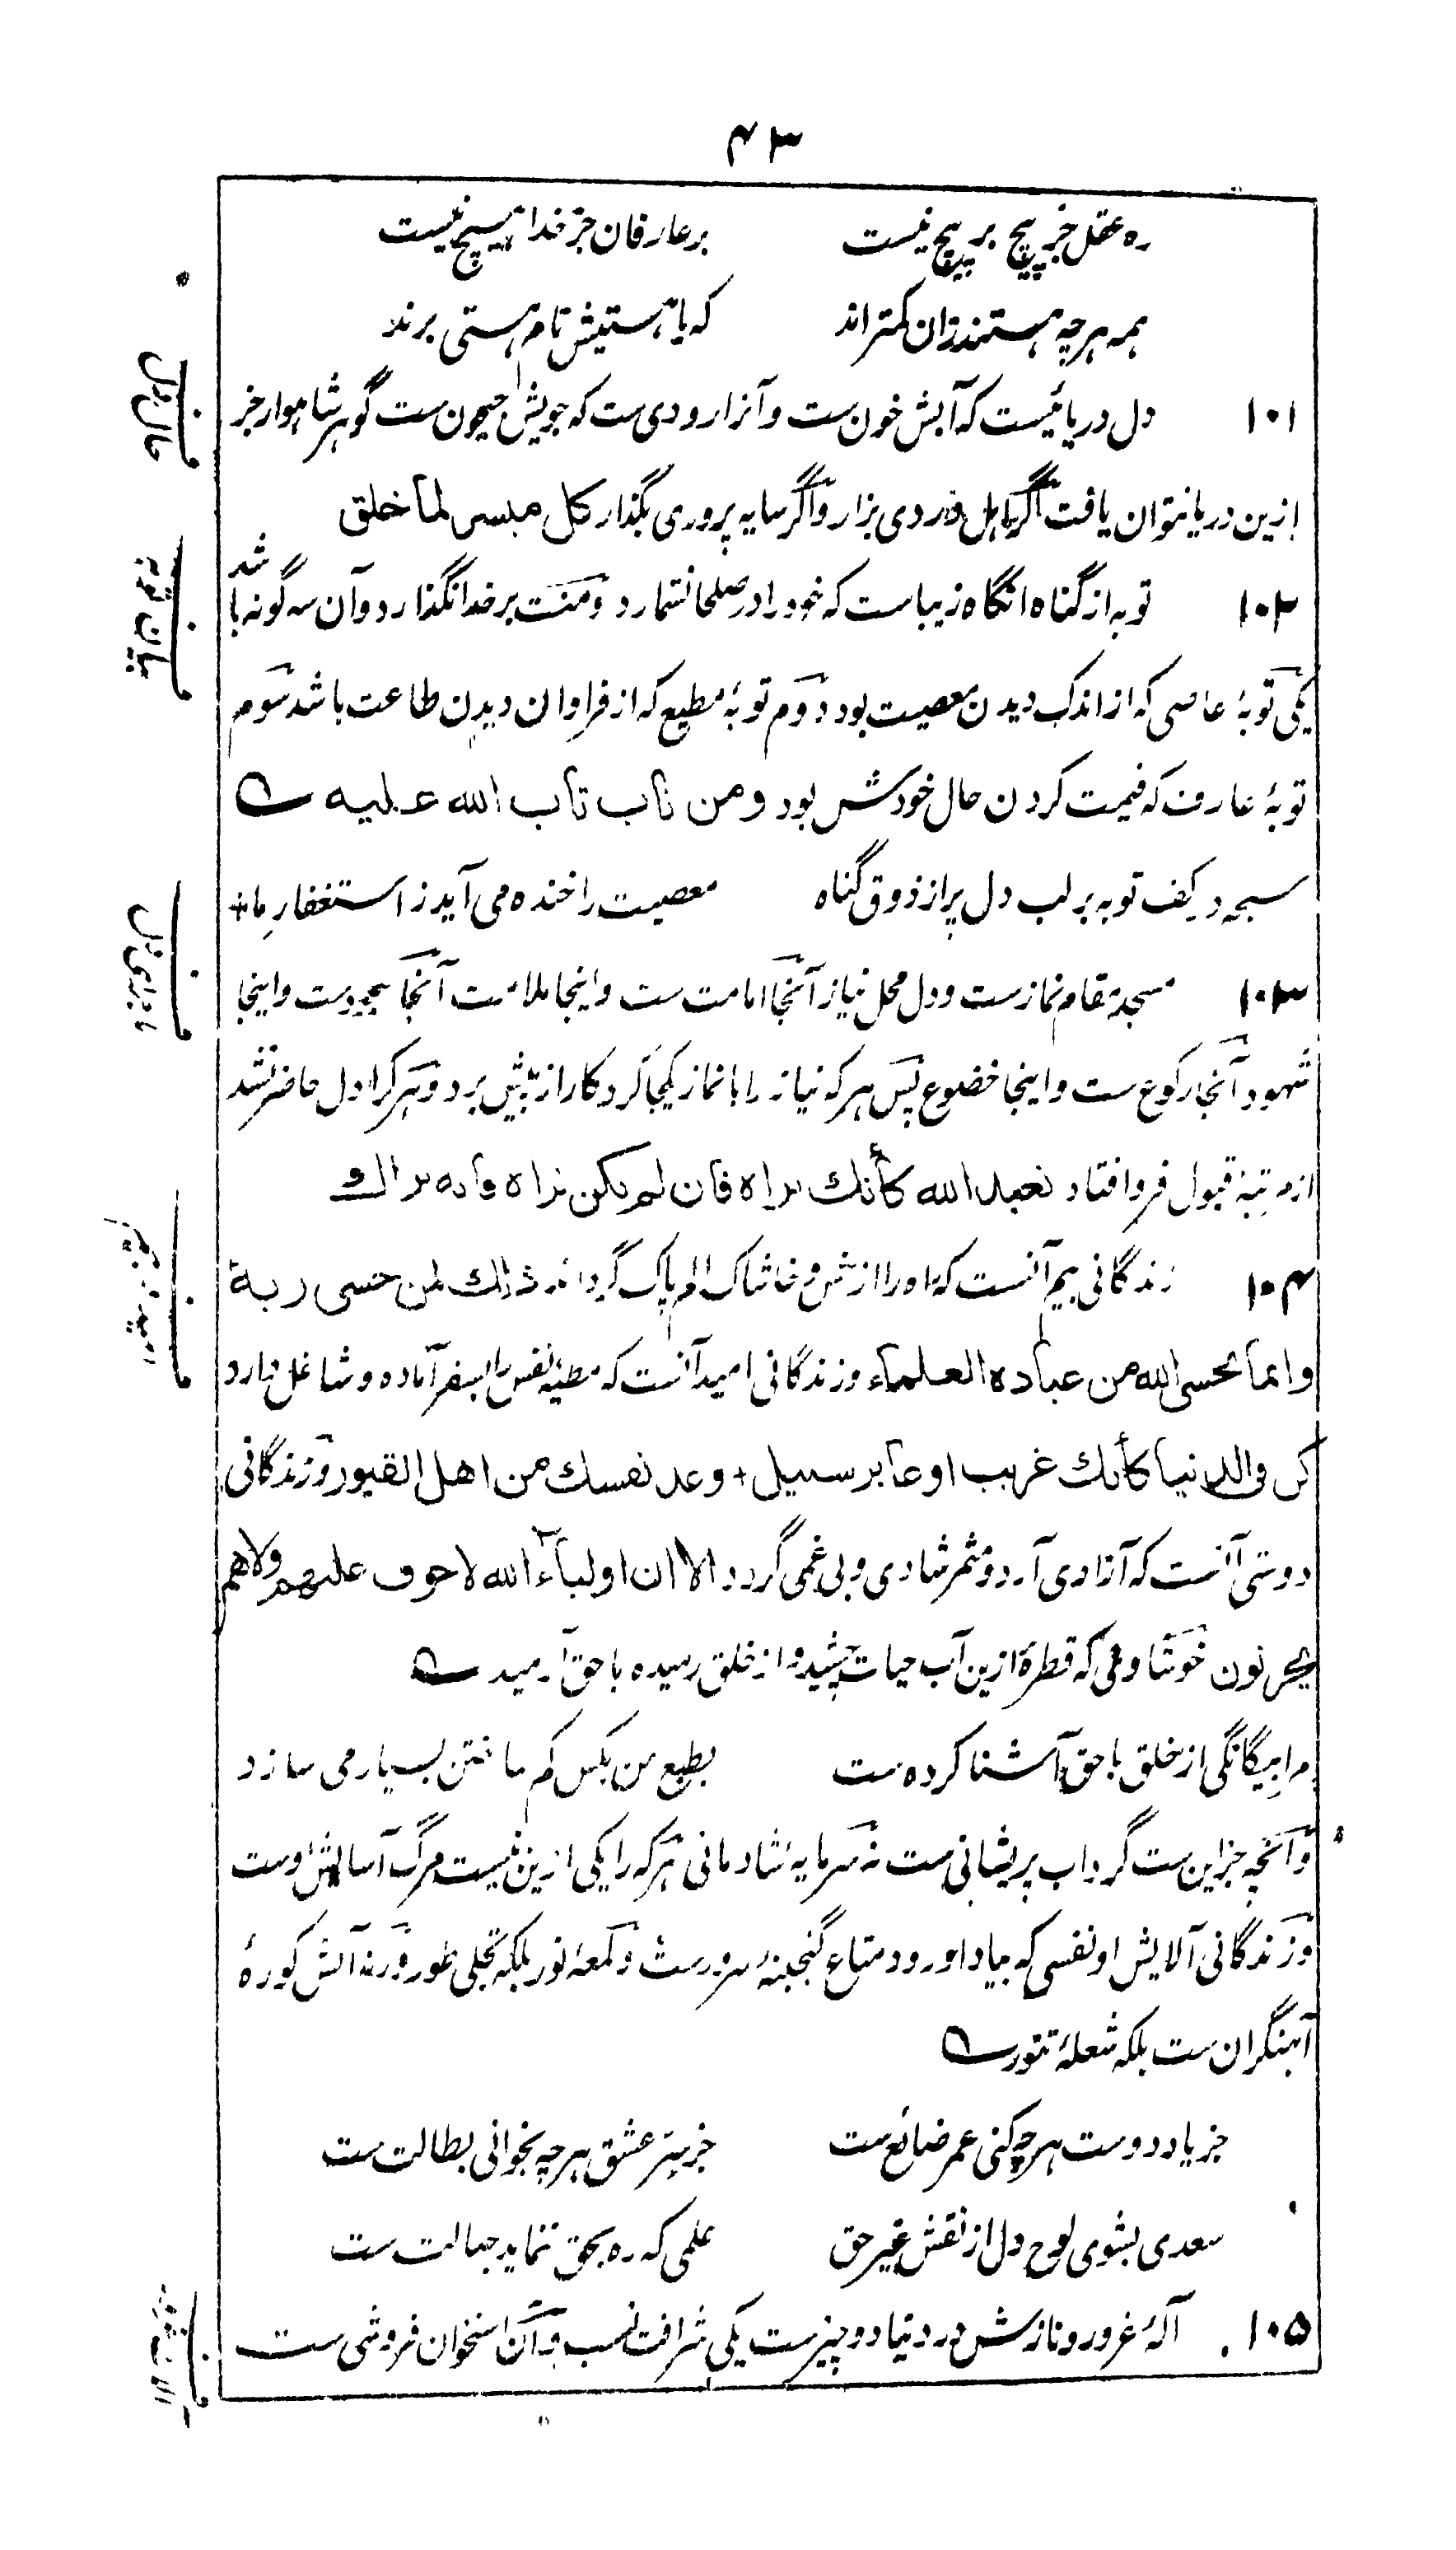 ۴۳
ره عقل جز پیچ بر پیچ نیست بر عارفان جز خدا هیچ نیست
همه هرچه هستند زان کمتر اند که با هستیش نام هستی برند
۱۰۱ دل دریائیست که آبش خون ست و آنرا رودی ست که جویش جیحون ست گوهر شاهوار جز
ازین دریا نتوان یافت اگر اهل دردی بزار و اگر سایه پروری بگذار کل میسر لما خلق
۱۰۲ توبه از گناه انگاه زیباست که خود را در صلحا نشمارد و منت بر خدا نگذارد و آن سه گونه باشد
یکی توبهٔ عاصی که از اندک دیدن معصیت بود دوم توبهٔ مطیع که از فراوان دیدن طاعت باشد سوم
توبهٔ عارف که قیمت کردن حال خودش بود ومن تاب تاب الله علیه
سبحه در کف توبه بر لب دل پر از ذوق گناه معصیت را خنده می آید ز استغفار ما
۱۰۳ مسجد مقام نماز ست و دل محل نیاز آنجا امامت ست و اینجا ملامت آنجا سجود ست و اینجا
شهود آنجا رکوع ست و اینجا خضوع پس هر که نیاز را با نماز یکجا کرد کار از پیش برد و هر کرا دل حاضر نشد
از مرتبهٔ قبول فرو افتاد تعبد الله كأنك تراه فان لم تكن تراه فانه يراك
۱۰۴ زندگانی بیم آنست که راه را از خس و خاشاک الم پاک گرداند ذلك لمن خشى ربه
وانما يخشى الله من عباده العلماء و زندگانی امید آنست که مطیهٔ نفس را بسفر آماده و شاغل دارد
كن فى الدنيا كأنك غريب او عابر سبيل + وعد نفسك من اهل القبور و زندگانی
دوستی آنست که آزادی آرد و مثمر شادی و بی غمی گردد الا ان اولياء الله لا خوف عليهم ولا هم
يحزنون خوشا دمی که قطرهٔ ازین آب حیات چشید و از خلق رمیده با حق آرمید
مرا بیگانگی از خلق با حق آشنا کرده ست بطبع من بکس کم ساختن بسیار می سازد
و آنچه جز این ست گرداب پریشانی ست نه سرمایهٔ شادمانی هر که را یکی ازین نیست مرگ آسایش اوست
و زندگانی آلایش او نفسی که بیاد او رود متاع گنجینهٔ سرور ست و لمعهٔ نور بلکه تجلی طور ورنه آتش کورهٔ
آهنگران ست بلکه شعلهٔ تنور
جز یاد دوست هر چه کنی عمر ضائع ست جز سر عشق هر چه بخوانی بطالت ست
سعدی بشوی لوح دل از نقش غیر حق علمی که ره بحق ننماید جهالت ست
۱۰۵ آلهٔ غرور و نازش در دنیا دو چیز ست یکی شرافت نسب و آن استخوان فروشی ست
حال دل
بیان توبه
ماجرای دل
امید و بیم